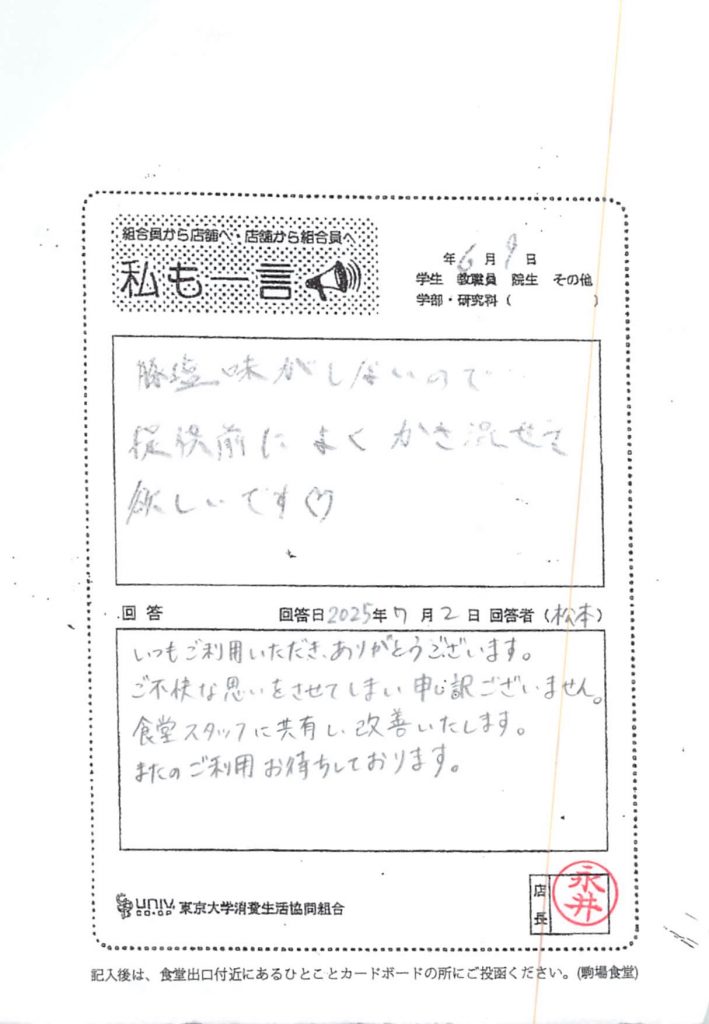 組合員から店舗へ・店舗から組合員へ
私も一言
年 6 月 9 日
学生 教職員 院生 その他
学部・研究科( )
豚塩味がしないので…
提供前に よく かき混ぜて
欲しいです♡
回答 回答日2025年7月2日 回答者(松本)
いつもご利用いただき、ありがとうございます。
ご不快な思いをさせてしまい 申し訳ございません。
食堂スタッフに共有し、改善いたします。
またのご利用お待ちしております。
UNIV. CO-OP 東京大学消費生活協同組合
店長
永井
記入後は、食堂出口付近にあるひとことカードボードの所にご投函ください。(駒場食堂)